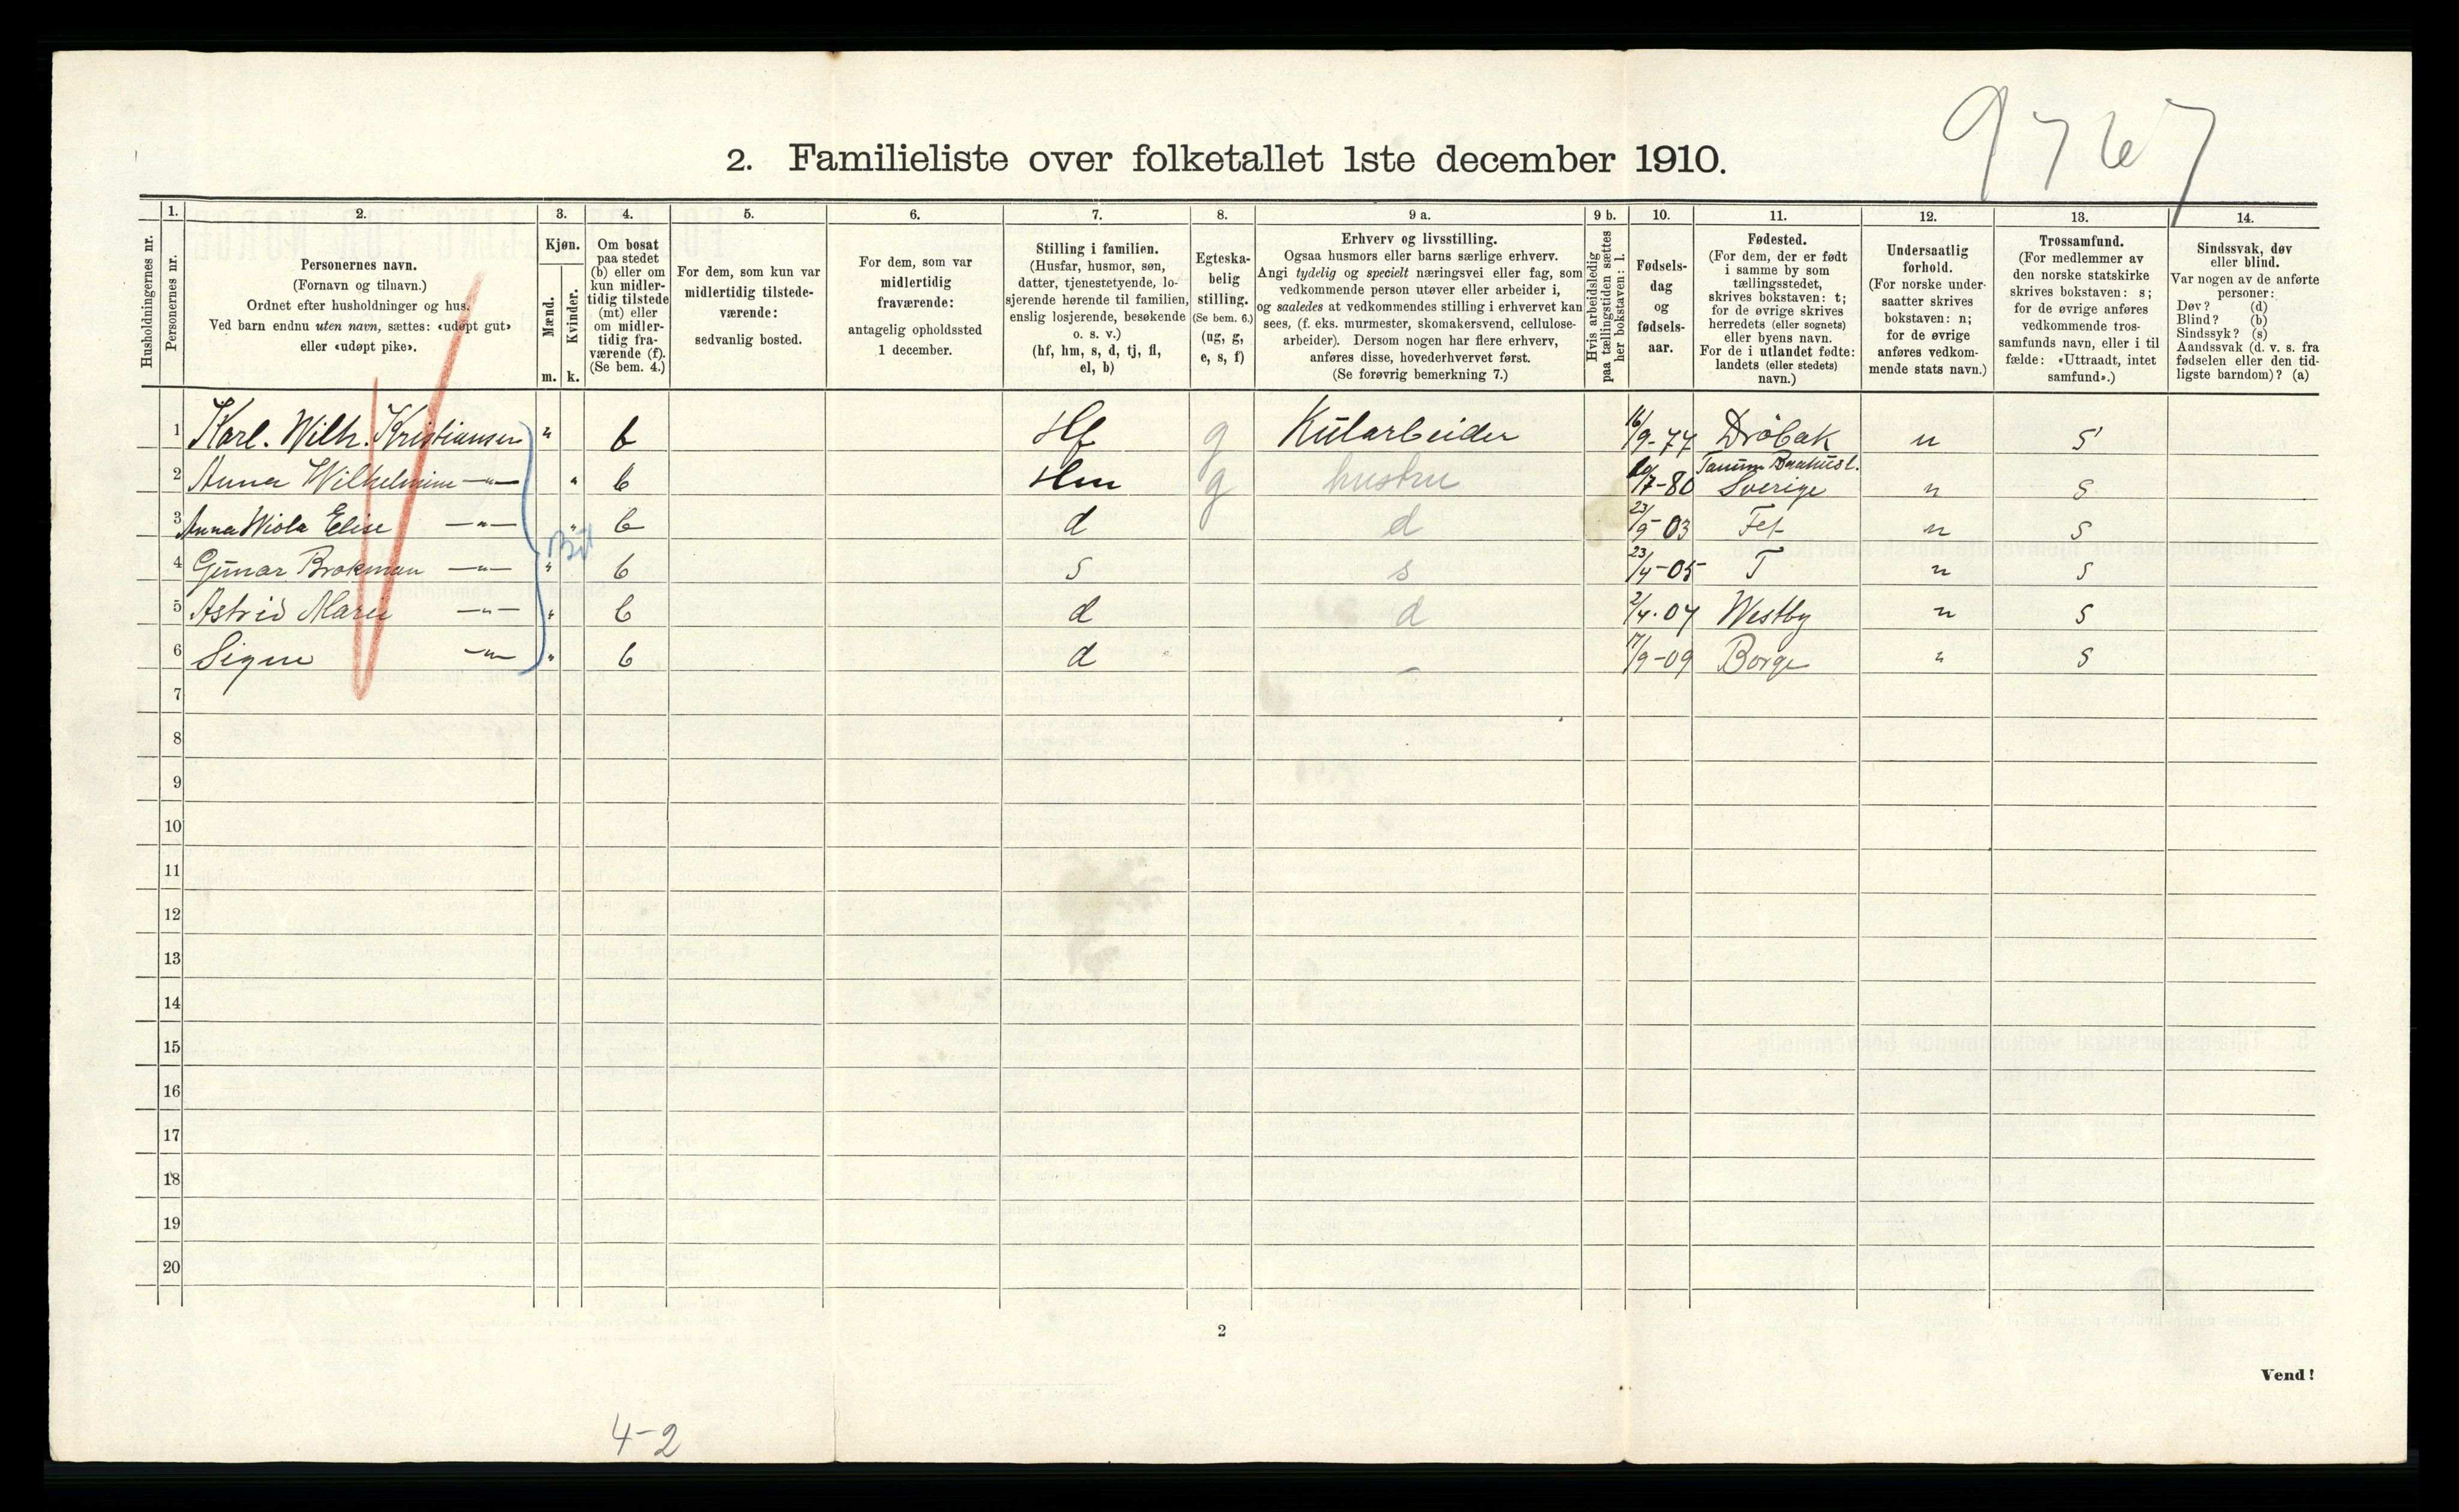 9767
2. Familieliste over folketallet 1ste december 1910.
Husholdningernes nr.
1. Personernes nr.
2. Personernes navn.
(Fornavn og tilnavn.)
Ordnet efter husholdninger og hus.
Ved barn endnu uten navn, sættes: «udøpt gut»
eller «udøpt pike».
3. Kjøn.
Mænd. Kvinder.
m. k.
4. Om bosat
paa stedet
(b) eller om
kun midler-
tidig tilstede
(mt) eller
om midler-
tidig fra-
værende (f).
(Se bem. 4.)
5. For dem, som kun var
midlertidig tilstede-
værende:
sedvanlig bosted.
6. For dem, som var
midlertidig
fraværende:
antagelig opholdssted
1 december.
7. Stilling i familien.
(Husfar, husmor, søn,
datter, tjenestetyende, lo-
sjerende hørende til familien,
enslig losjerende, besøkende
o. s. v.)
(hf, hm, s, d, tj, fl,
el, b)
8. Egteska-
belig
stilling.
(Se bem. 6.)
(ug, g,
e, s, f)
9 a. Erhverv og livsstilling.
Ogsaa husmors eller barns særlige erhverv.
Angi tydelig og specielt næringsvei eller fag, som
vedkommende person utøver eller arbeider i,
og saaledes at vedkommendes stilling i erhvervet kan
sees, (f. eks. murmester, skomakersvend, cellulose-
arbeider). Dersom nogen har flere erhverv,
anføres disse, hovederhvervet først.
(Se forøvrig bemerkning 7.)
9 b. Hvis arbeidsledig
paa tællingstiden sættes
her bokstaven: l.
10. Fødsels-
dag
og
fødsels-
aar.
11. Fødested.
(For dem, der er født
i samme by som
tællingsstedet,
skrives bokstaven: t;
for de øvrige skrives
herredets (eller sognets)
eller byens navn.
For de i utlandet fødte:
landets (eller stedets)
navn.)
12. Undersaatlig
forhold.
(For norske under-
saatter skrives
bokstaven: n;
for de øvrige
anføres vedkom-
mende stats navn.)
13. Trossamfund.
(For medlemmer av
den norske statskirke
skrives bokstaven: s;
for de øvrige anføres
vedkommende tros-
samfunds navn, eller i til
fælde: «Uttraadt, intet
samfund».)
14. Sindssvak, døv
eller blind.
Var nogen av de anførte
personer:
Døv? (d)
Blind? (b)
Sindssyk? (s)
Aandssvak (d. v. s. fra
fødselen eller den tid-
ligste barndom)? (a)
1 Karl. Wilh. Kristiansen " b Hf g Kularbeider 16/9-77 Drøbak n S
2 Anna Wilhelmine —"— " b Hm g hustru /7-80 Tanum Baahusl. Sverige n S
3 Anna Wiola Elise —"— " b d d 23/9-03 Fet n S
4 Gunar Brokman —"— " b S s 23/4-05 T n S
5 Astrid Marie —"— " b d d 2/4-07 Westby n S
6 Signe —"— " b d – 17/9-09 Borge " S
7
8
9
10
11
12
13
14
15
16
17
18
19
20
2
Vend!
4-2